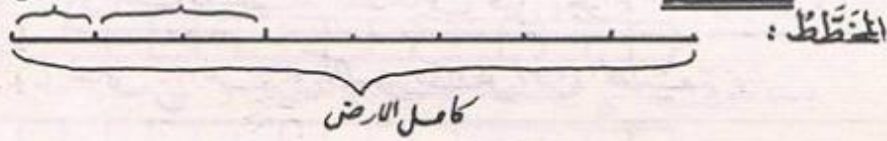 المُخَطَّطُ :
كامل الارض